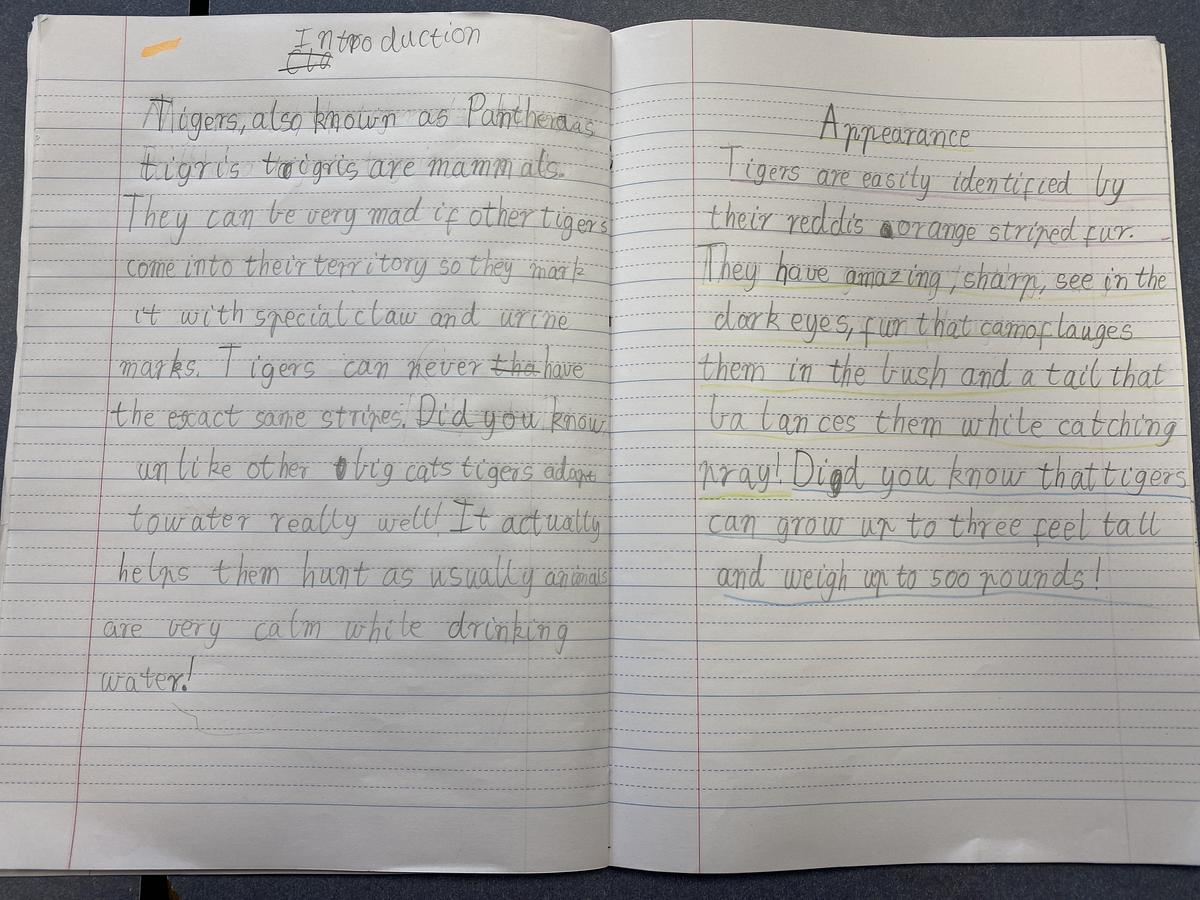 Introduction
Cla
Tigers, also known as Pantheraas
tigris toigris are mammals.
They can be very mad if other tigers
come into their territory so they mark
it with special claw and urine
marks. Tigers can never tha have
the exact same stripes. Did you know,
unlike other big cats tigers adapt
to water really well! It actually
helps them hunt as usually animals
are very calm while drinking
water!
Appearance
Tigers are easily identified by
their reddis orange striped fur.
They have amazing, sharp, see in the
dark eyes, fur that camoflauges
them in the bush and a tail that
balances them while catching
pray! Did you know that tigers
can grow up to three feel tall
and weigh up to 500 pounds!